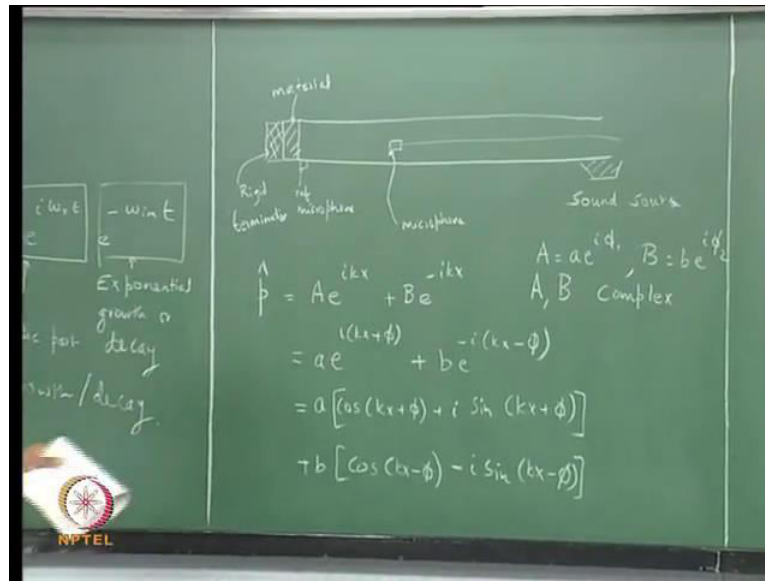 material
Rigid
terminator
ref
microphone
microphone
Sound source
e^{iω_r t}
e^{-ω_{im} t}
Exponential
growth or
decay
part
growth/decay
p̂ = Ae^{ikx} + Be^{-ikx}
A = ae^{iϕ_1}, B = be^{iϕ_2}
A, B Complex
= ae^{i(kx+ϕ)} + be^{-i(kx-ϕ)}
= a[cos(kx+ϕ) + i Sin (kx+ϕ)]
+ b [cos(kx-ϕ) - i Sin (kx-ϕ)]
NPTEL